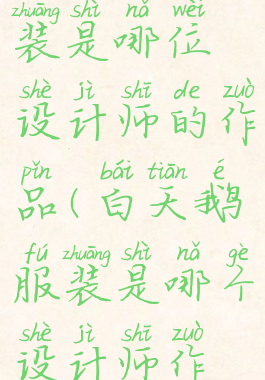 zhuāng shì nǎ wèi
装是哪位
shè jì shī de zuò
设计师的作
pǐn bái tiān é
品(白天鹅
fú zhuāng shì nǎ gè
服装是哪个
shè jì shī zuò
设计师作